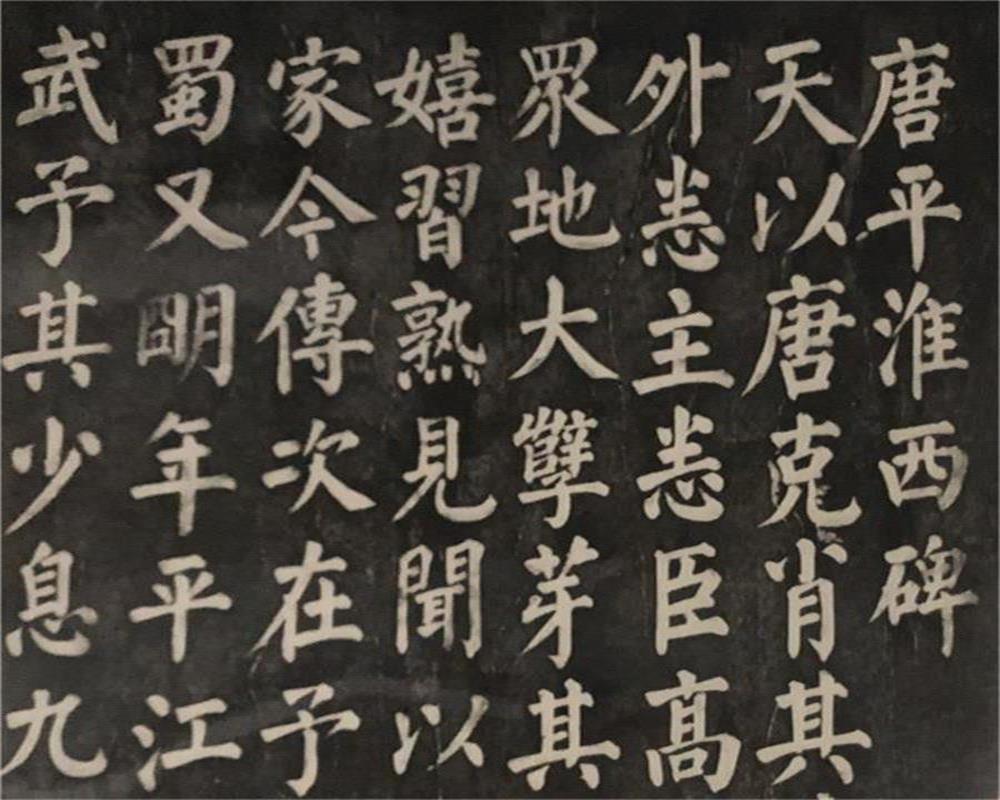 唐平淮西碑
天以唐克肖其
外恙主恙臣高
眾地大孽芽其
嬉習熟見聞以
家今傳次在予
蜀又明年平江
武予其少息九